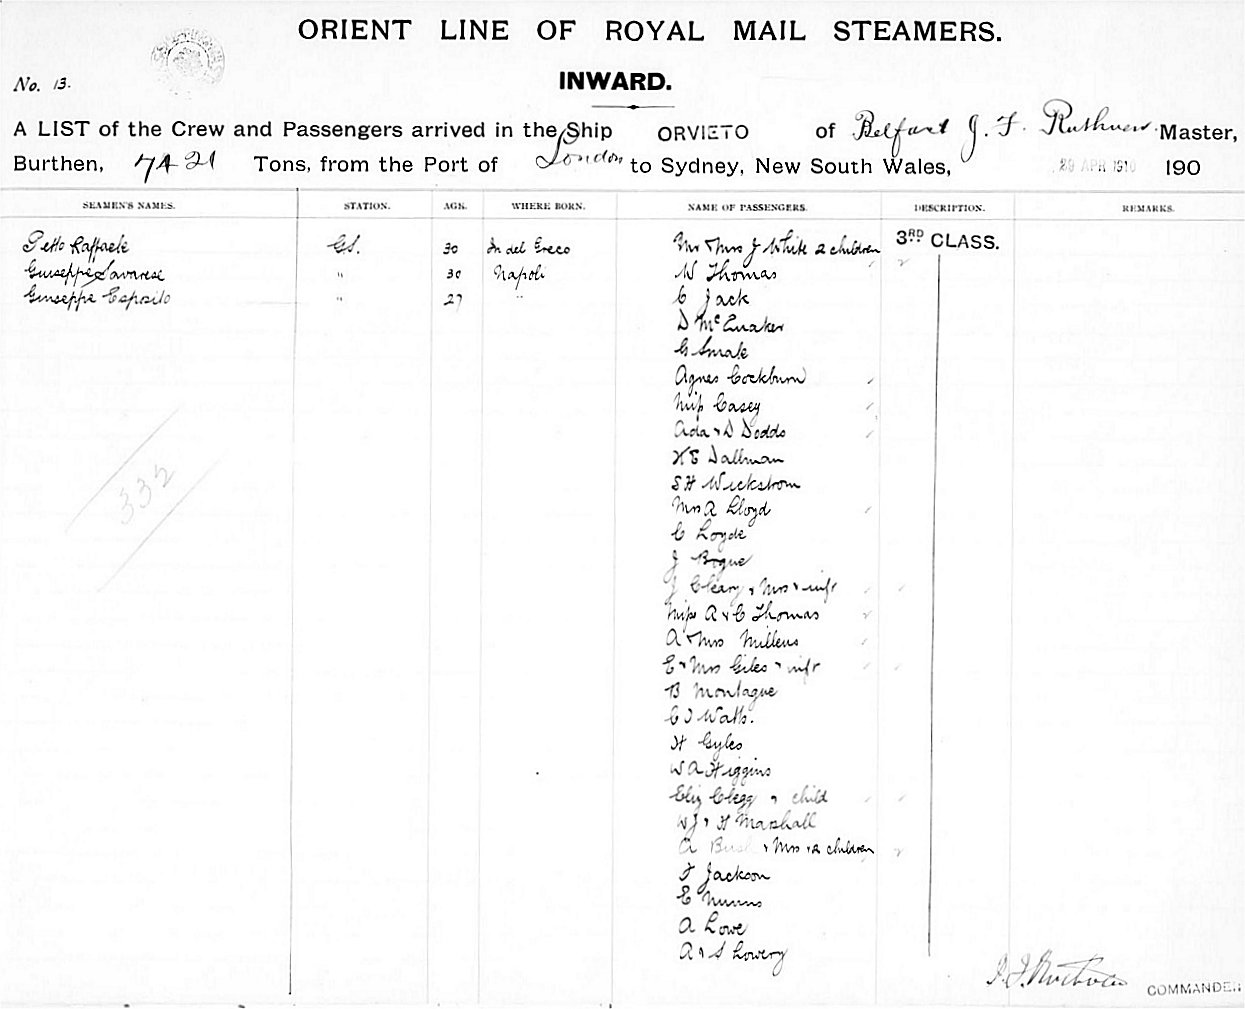 ORIENT LINE OF ROYAL MAIL STEAMERS.
No. 13.
INWARD.
A LIST of the Crew and Passengers arrived in the Ship ORVIETO of Belfast J. F. Ruthven Master,
Burthen, 7421 Tons, from the Port of London to Sydney, New South Wales, 29 APR 1910 190
SEAMEN'S NAMES. STATION. AGE. WHERE BORN. NAME OF PASSENGERS. DESCRIPTION. REMARKS.
Raffaele G.S. 30 del Greco Mr & Mrs J White 2 children 3RD CLASS.
Giuseppe Savarese " 30 Napoli W Thomas
Giuseppe Esposito " 27 " C Jack
D McQuaker
G Smale
Agnes Cockburn
Miss Casey
Ada & D Dodds
H E Dallman
S H Wickstrom
332
Mrs A Lloyd
C Loyde
J Bogue
J Cleary & Mrs & inft
Miss A & C Thomas
A & Mrs Millens
E & Mrs Giles & inft
B Montague
C J Watts.
H Gyles
W A Higgins
Eliz Clegg & child
W J & H Marshall
A Bush & Mrs & 2 children
F Jackson
E Nunns
A Lowe
A & S Lowery
J. F. Ruthven COMMANDER